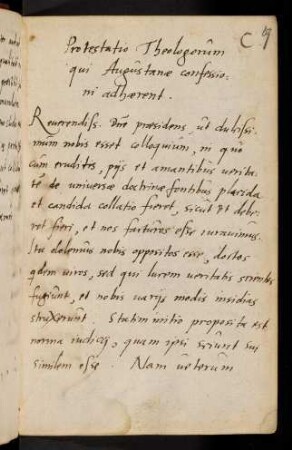 C 9
Protestatio Theologorum
qui Augustanæ confessio-
ni adhærent.
Reverendiss. Dne præsidens, ut dulcissi-
mum nobis esset colloquium, in quo
cum eruditis, pijs et amantibus verita-
tē de universæ doctrinæ fontibus placida
et candida collatio fieret, sicut et debe-
ret fieri, et nos facturos esse iuravimus.
Ita dolemus nobis oppositos esse, doctos
qdem viros, sed qui lucem veritatis scientes
fugiunt, et nobis varijs modis insidias
struxerunt. Statim initio proposita est
norma iudicij, quam ipsi sciunt sui
similem esse. Nam veterum